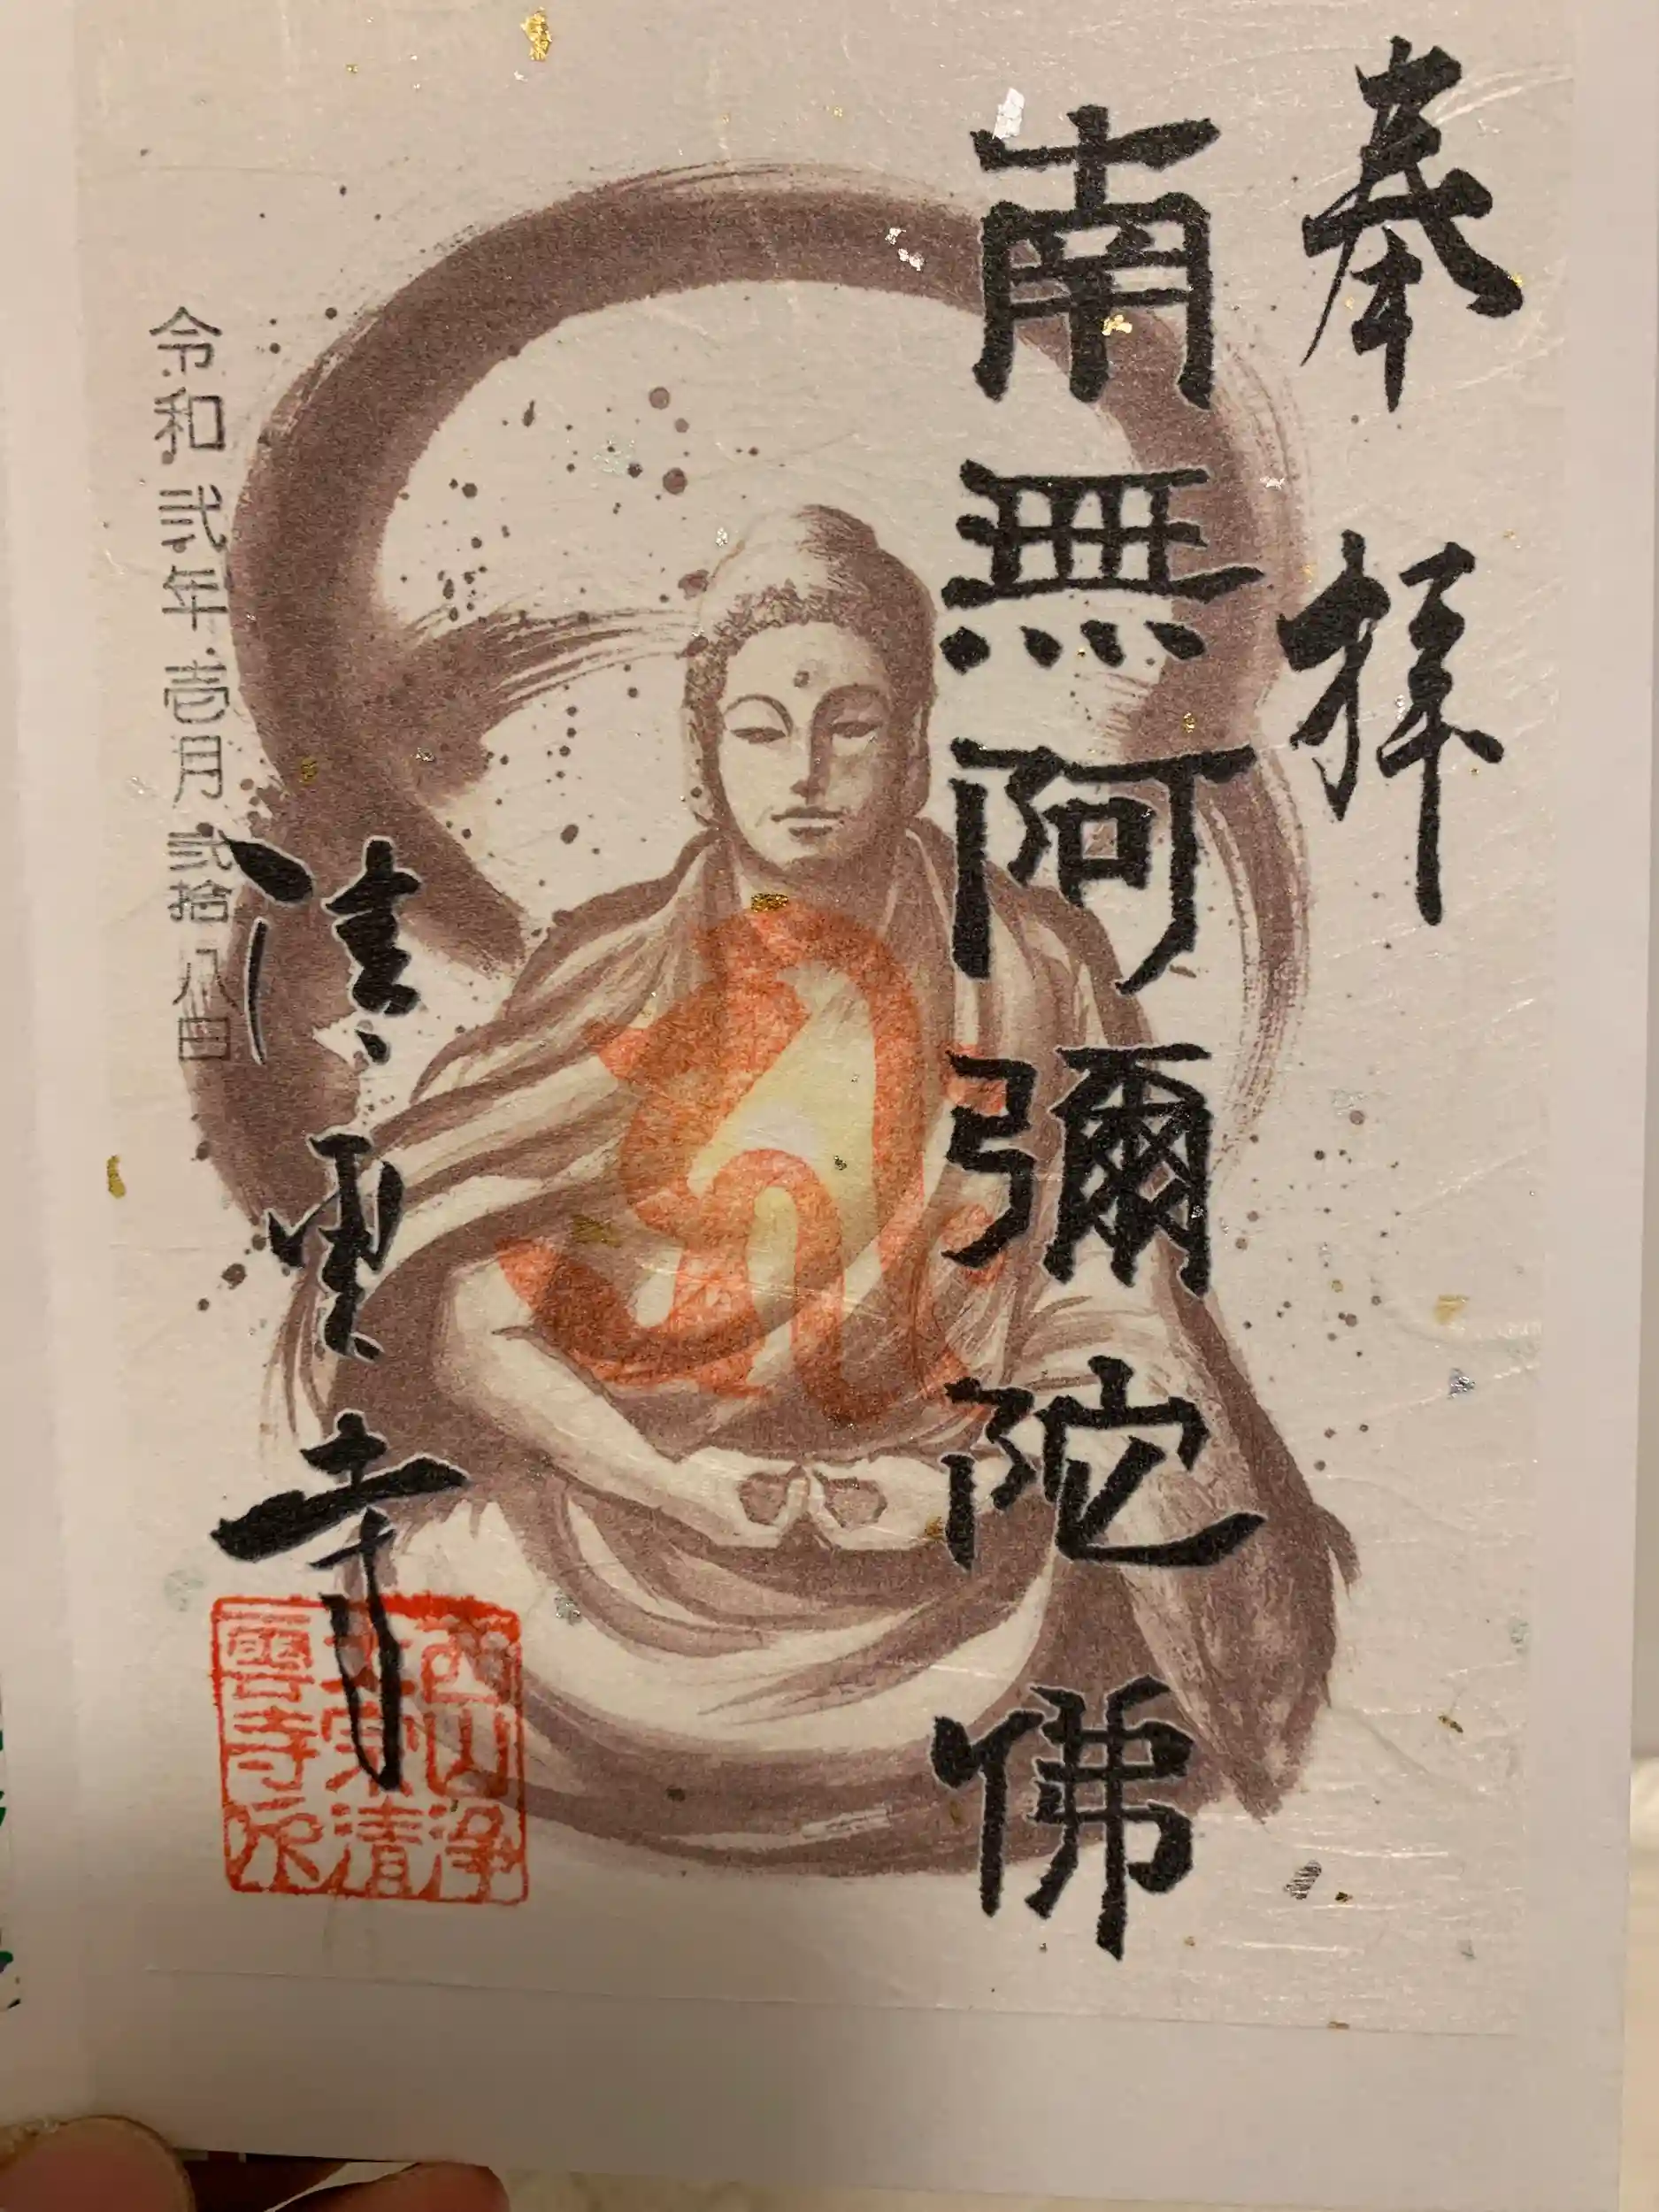 奉拝
南無阿彌陀佛
令和弐年壱月弐拾八日
清雲寺
西山浄
土宗清
雲寺印